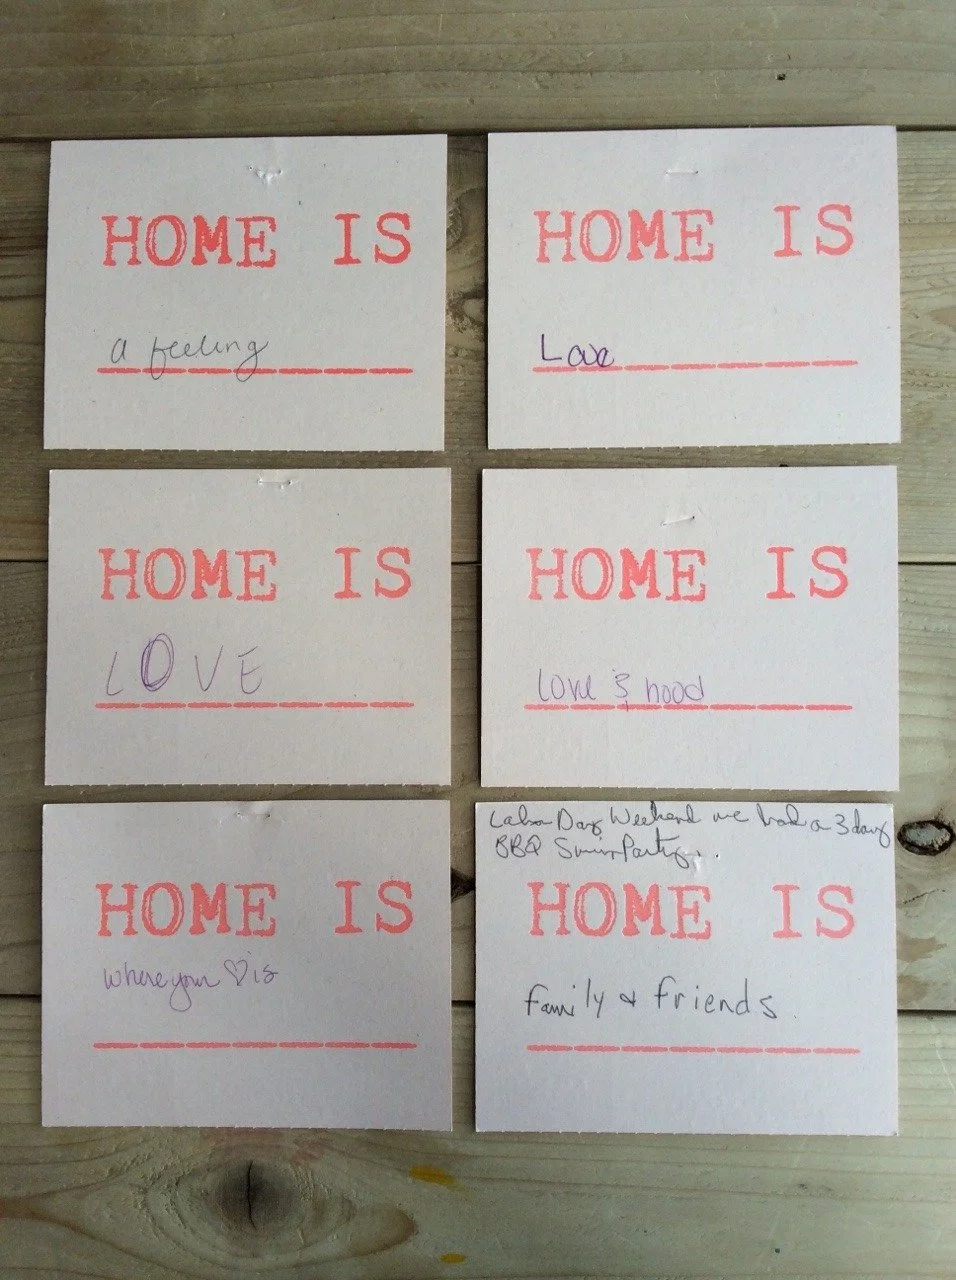 HOME IS
a feeling
HOME IS
Love
HOME IS
LOVE
HOME IS
love & hood
HOME IS
where your ♡ is
Labor Day Weekend we had a 3 day
BBQ Swim Party...
HOME IS
family & friends.